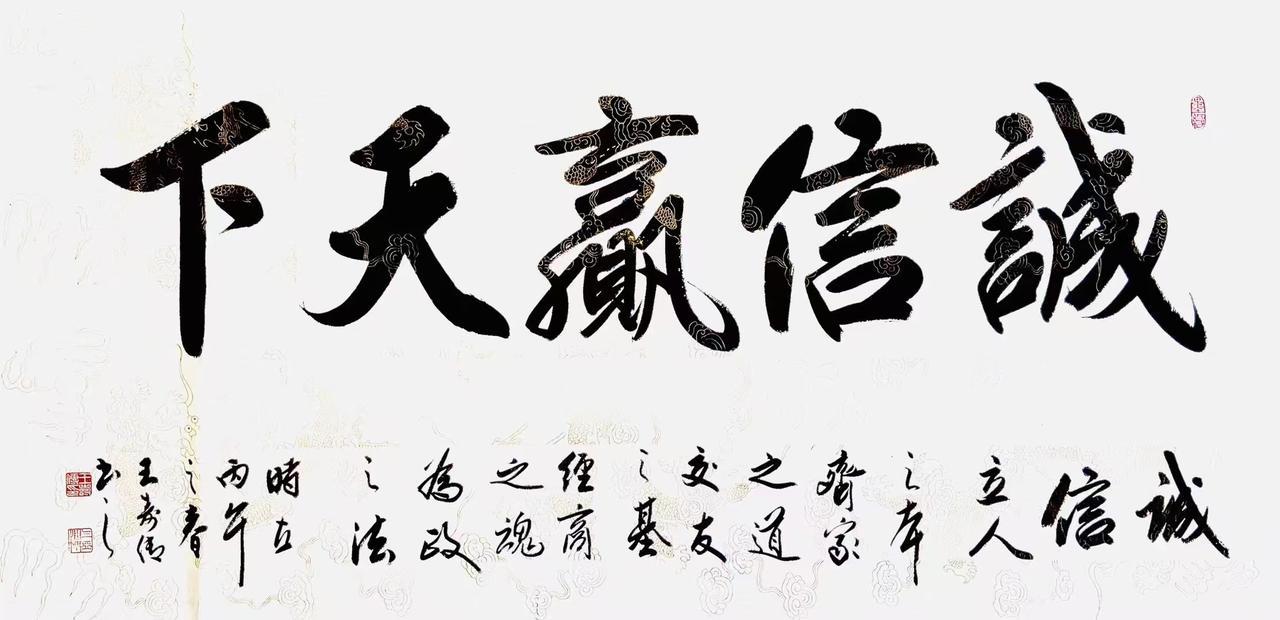 誠信贏天下
诚
信
立人
之本
齊家
之道
交友
之基
經商
之魂
為政
之法
時在
丙午
之春
王寿
书之